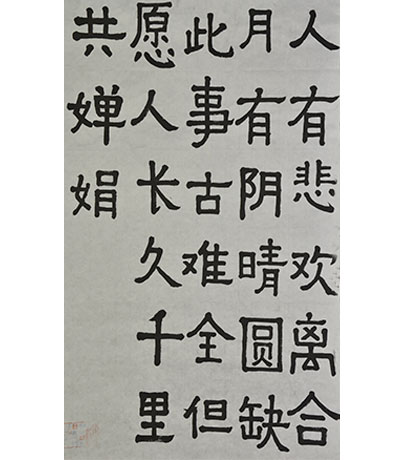 人有悲欢离合
月有阴晴圆缺
此事古难全但
愿人长久千里
共婵娟